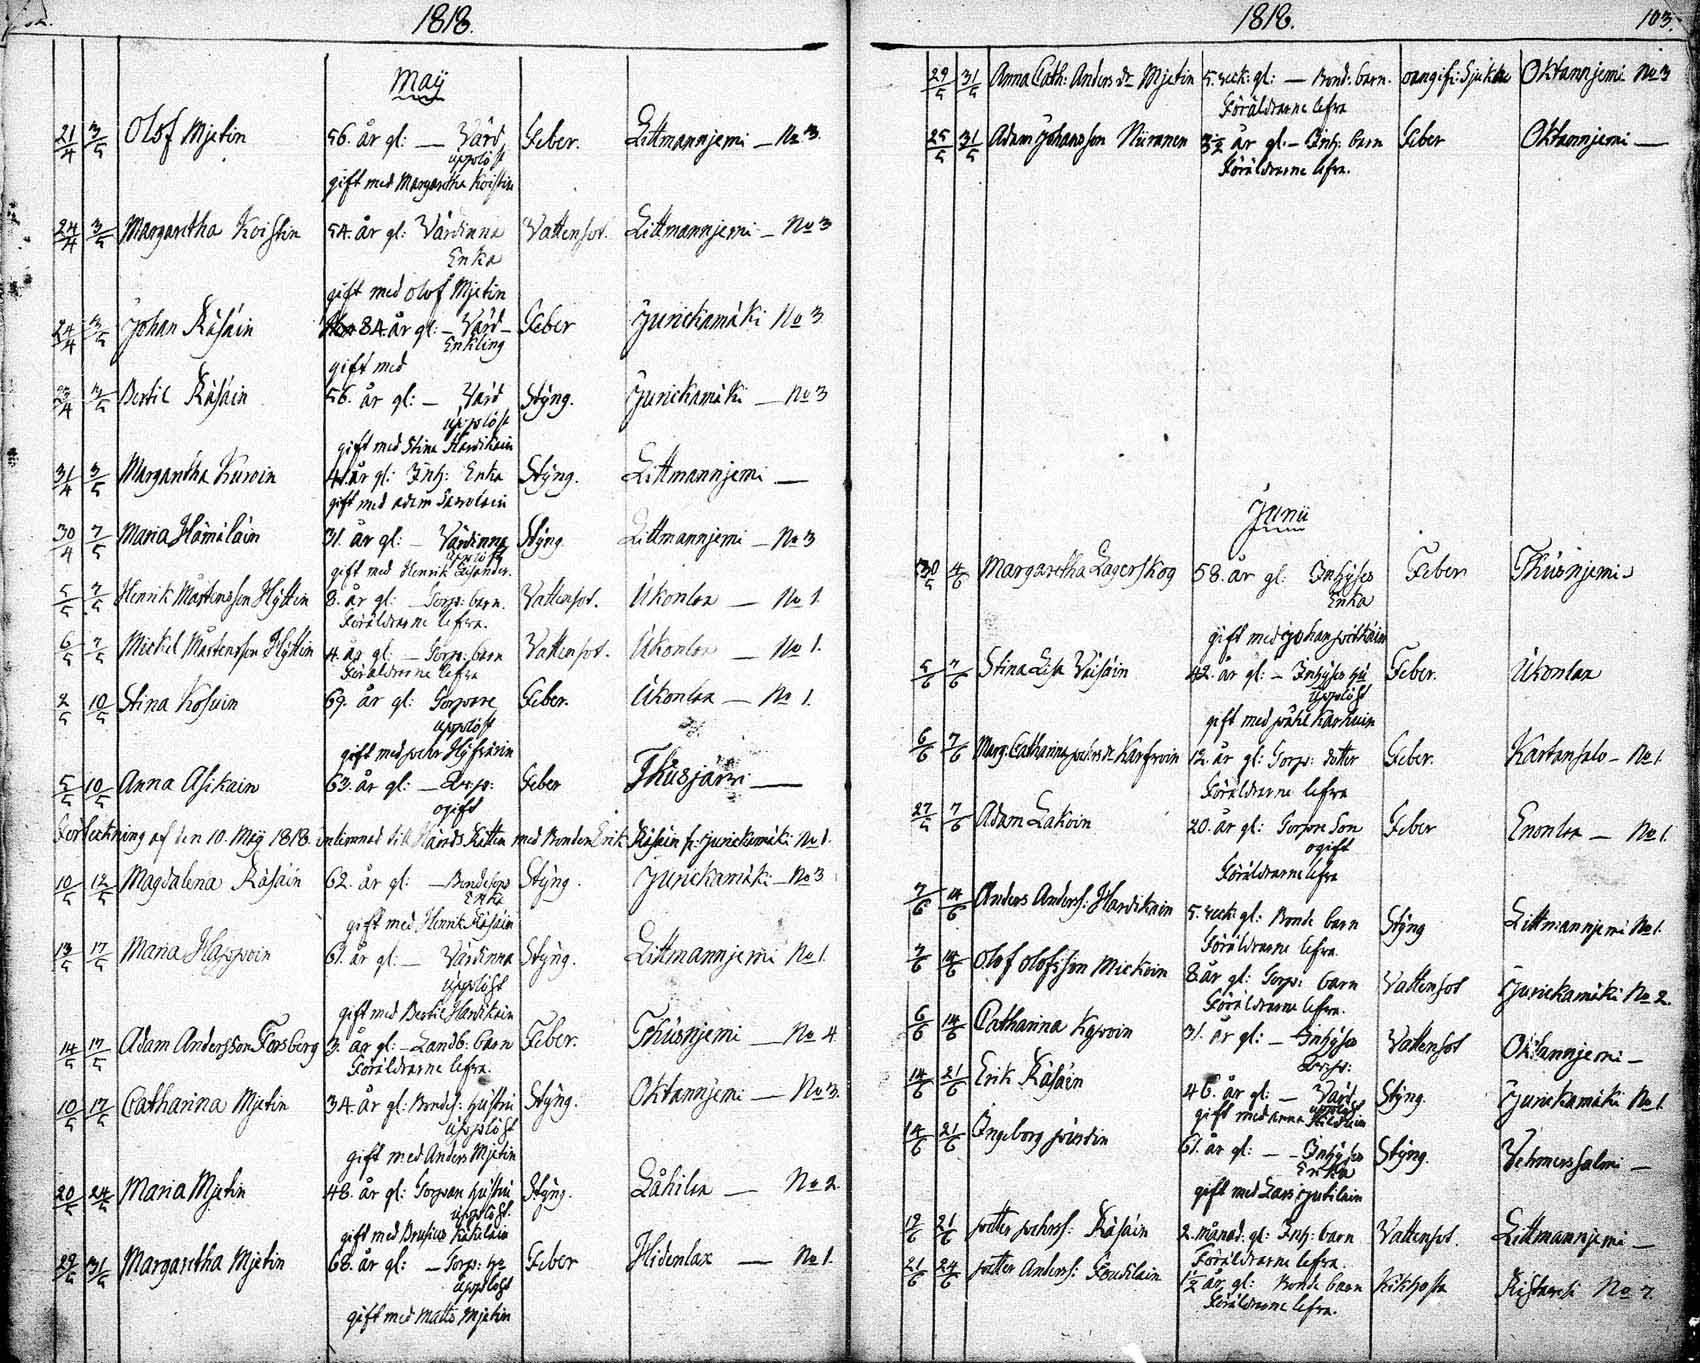 1818.
May
21/4 3/5 Olof Mjetin 56. år gl: — Värd Feber. Littmannjemi — No 3.
upplöst
gift med Margaretha Koistin
24/4 3/5 Margaretha Koistin 54. år gl: Värdinna Vattensot. Littmannjemi — No 3
Enka
gift med Olof Mjetin
24/4 3/5 Johan Räsäin 84. år gl: — Värd — Feber Jurickamäki No 3
Enkling
gift med
3/5 Bertil Räsäin 56. år gl: — Värd Stÿng. Jurickamäki — No 3
upplöst
gift med Stina Hardikain
31/4 3/5 Margaretha Kurvin år gl: Inh: Enka Stÿng. Littmannjemi —
gift med Adam Savolain
30/4 7/5 Maria Hämäläin 31. år gl: — Värdinna Stÿng. Littmannjemi — No 3
upplöst
gift med Henrik
5/5 7/5 Henrik Mårtensson Hÿttin 8. år gl: — Torp: barn. Vattensot. Ukonlax — No 1.
Föräldrarne lefva.
6/5 7/5 Mickel Mårtensson Hÿttin 4. år gl: — Torp: barn Vattensot. Ukonlax — No 1.
Föräldrarne lefva
2/5 10/5 Stina Kosuin 69. år gl: Torpare Feber. Ukonlax — No 1.
upplöst
gift med petter
5/5 10/5 Anna Asikain 63. år gl: — Feber Thusjärvi —
ogift
Förteckning af den 10. Maÿ 1818. inlemnad till Härads Rätten med Bonden Erik Räsäin fr: Jurickamäki No 1.
10/5 12/5 Magdalena Räsäin 62. år gl: — Stÿng. Jurickamäki — No 3
Enka
gift med Henrik Räsäin
13/5 17/5 Maria Happoin 61. år gl: — Värdinna Stÿng. Littmannjemi No 1.
upplöst
gift med Bertil Hardikain
14/5 17/5 Adam Andersson Forsberg 3. år gl: — Landb: barn Feber. Thusnjemi — No 4
Föräldrarne lefva.
10/5 17/5 Catharina Mjetin 34. år gl: Bondes: hustru Stÿng. Oktannjemi — No 3.
upplöst
gift med Anders Mjetin
20/5 24/5 Maria Mjetin 48. år gl: Torpare hustru Stÿng. Låhilax — No 2
upplöst.
gift med Brusius
29/5 31/5 Margaretha Mjetin 68. år gl: — Torp: hu Feber Hidenlax — No 1.
upplöst
gift med Matts Mjetin
1818.
103.
29/5 31/5 Anna Cath: Anders dr Mjetin 5. veck: gl: — Bond: barn. oangif: Sjukdo Oktannjemi No 3
Föräldrarne lefva
25/5 31/5 Adam Johansson Niiranen 3½ år gl. — Inh: barn Feber Oktannjemi —
Föräldrarne lefva.
Junii
30/5 4/6 Margaretha Lagerskog 58. år gl: Inhÿses Feber Thusnjemi
Enka
gift med Johan
5/6 7/6 Stina Lisa Väisäin 42. år gl: — Inhÿses hu Feber. Ukonlax
upplöst
gift med påhl Karhuin
6/6 7/6 Marg: Catharina 12. år gl: Torp: dotter Feber. Kartansalo — No 1.
Föräldrarne lefva
27/5 7/6 Adam Lakoin 20. år gl: Torpare Son Feber Enonlax — No 1.
ogift
Föräldrarne lefva
7/6 14/6 Anders Anderss: Hardikain 5. veck: gl: Bonde barn Stÿng Littmannjemi No 1.
Föräldrarne lefva.
7/6 14/6 Olof Olofsson Mickoin 8. år gl: Torp: barn Vattensot Jurickamäki No 2.
Föräldrarne lefva.
6/6 14/6 Catharina Kapoin 31. år gl: — Inhÿses Vattensot Oktannjemi —
14/6 21/6 Erik Räsäin 46. år gl: — Värd Stÿng. Jurickamäki No 1.
upplöst
gift med Anna
14/6 21/6 Ingeborg 61. år gl: — Inhÿses Stÿng. Vehmerssalmi —
Enka
gift med Lars Jutilain
19/6 21/6 petter pehrss: Räsäin 2. månad: gl: Inh: barn Vattensot. Littmannjemi —
Föräldrarne lefva.
21/6 24/6 petter Anderss: 1½ år gl: Bonde barn Kikhosta No 7.
Föräldrarne lefva.